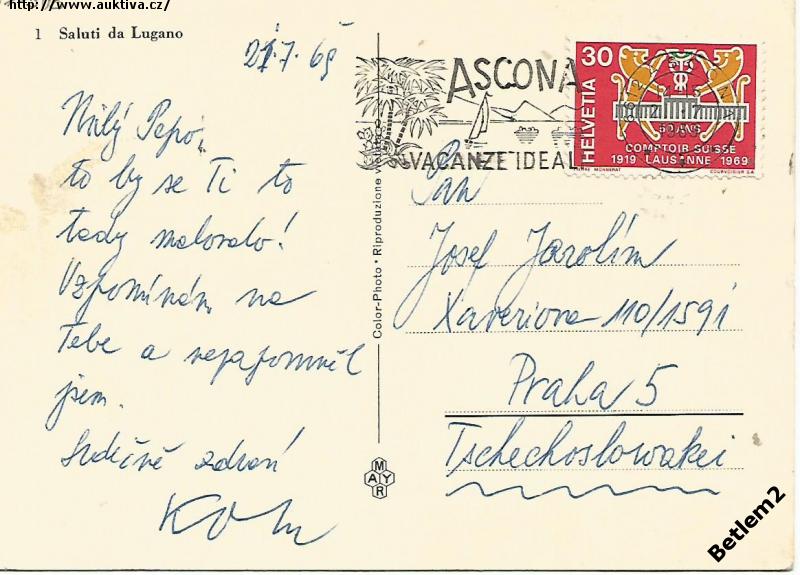 http://www.auktiva.cz/
1 Saluti da Lugano
21.7.69
Milý Pepo,
to by se Ti to
tady malovalo!
Vzpomínám na
Tebe a nezapomněl
jsem.
Srdečně zdraví
ASCONA
VACANZE IDEALI
HELVETIA 30
50 ANS
COMPTOIR SUISSE
1919 LAUSANNE 1969
PIERRE MONNERAT COURVOISIER S.A.
Color-Photo • Riproduzione
Pan
Josef Jarolím
Xaveriova 110/1591
Praha 5
Tschechoslowakei
MAYR
Betlem2